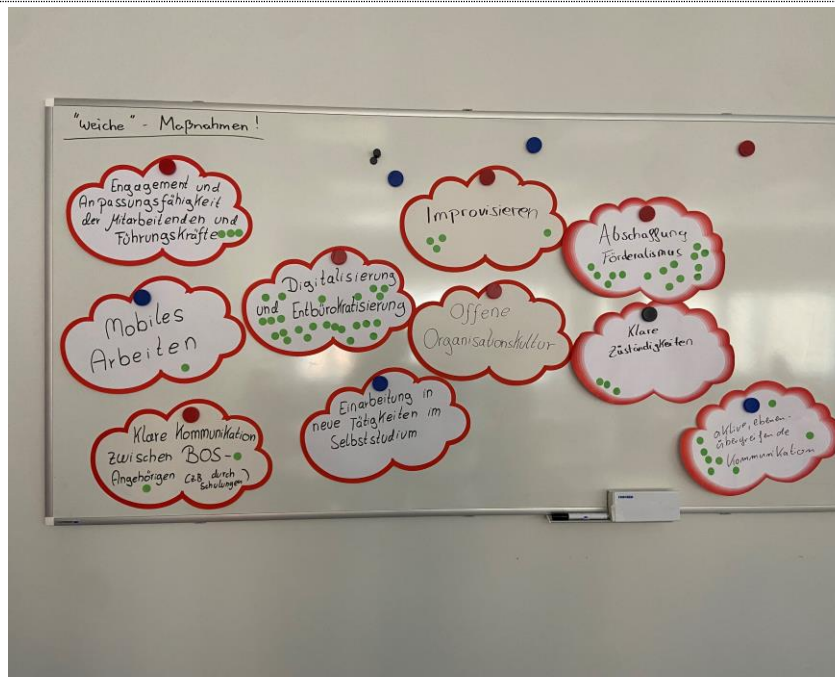 "weiche" - Maßnahmen!
Engagement und
Anpassungsfähigkeit
der Mitarbeitenden und
Führungskräfte
Mobiles
Arbeiten
Klare Kommunikation
zwischen BOS-
Angehörigen (z.B. durch
Schulungen)
Digitalisierung
und Entbürokratisierung
Einarbeitung in
neue Tätigkeiten im
Selbststudium
Improvisieren
Offene
Organisationskultur
Abschaffung
Förderalismus
Klare
Zuständigkeiten
aktive, ebenen-
übergreifende
Kommunikation